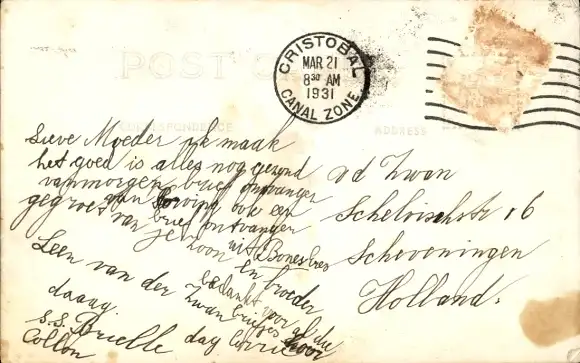 POST C
CRISTOBAL
MAR 21
8 30 AM
1931
CANAL ZONE
CORRESPONDENCE
ADDRESS
Lieve Moeder ik maak
het goed is alles nog gezond
vanmorgen brief ontvangen
van ook een
gegroet van brief ontvangen
je zoon uit Bones
en broeder
Leen van der Zwan
bedankt voor al die
daaag briefjes hoor
S.S. Brielle dag
Collon
v d Zwan
Schelvischstr 16
Scheveningen
Holland.